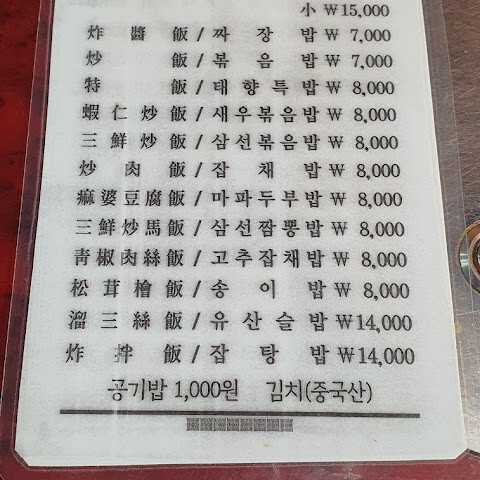 小 ₩15,000
炸醬飯 / 짜장밥 ₩ 7,000
炒飯 / 볶음밥 ₩ 7,000
特飯 / 태향특밥 ₩ 8,000
蝦仁炒飯 / 새우볶음밥 ₩ 8,000
三鮮炒飯 / 삼선볶음밥 ₩ 8,000
炒肉飯 / 잡채밥 ₩ 8,000
麻婆豆腐飯 / 마파두부밥 ₩ 8,000
三鮮炒馬飯 / 삼선짬뽕밥 ₩ 8,000
靑椒肉絲飯 / 고추잡채밥 ₩ 8,000
松茸檜飯 / 송이밥 ₩ 8,000
溜三絲飯 / 유산슬밥 ₩14,000
炸拌飯 / 잡탕밥 ₩14,000
공기밥 1,000원 김치(중국산)